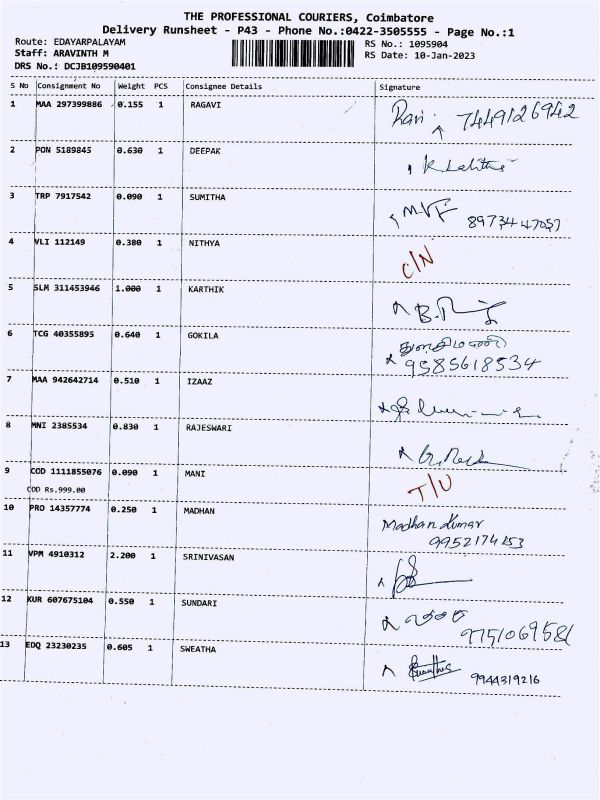 THE PROFESSIONAL COURIERS, Coimbatore
Delivery Runsheet - P43 - Phone No.:0422-3505555 - Page No.:1
Route: EDAYARPALAYAM
Staff: ARAVINTH M
DRS No.: DCJB109590401
RS No.: 1095904
RS Date: 10-Jan-2023
S No Consignment No Weight PCS Consignee Details Signature
1 MAA 297399886 0.155 1 RAGAVI Ravi 7449126942
2 PON 5189845 0.630 1 DEEPAK
3 TRP 7917542 0.090 1 SUMITHA 8973447057
4 VLI 112149 0.380 1 NITHYA C/N
5 SLM 311453946 1.000 1 KARTHIK
6 TCG 40355895 0.640 1 GOKILA 9585618534
7 MAA 942642714 0.510 1 IZAAZ
8 MNI 2385534 0.830 1 RAJESWARI
9 COD 1111855076 0.090 1 MANI T/U
COD Rs.999.00
10 PRO 14357774 0.250 1 MADHAN Madhan Kumar
9952174153
11 VPM 4910312 2.200 1 SRINIVASAN
12 KUR 607675104 0.550 1 SUNDARI 9751069581
13 EDQ 23230235 0.605 1 SWEATHA 9944319216